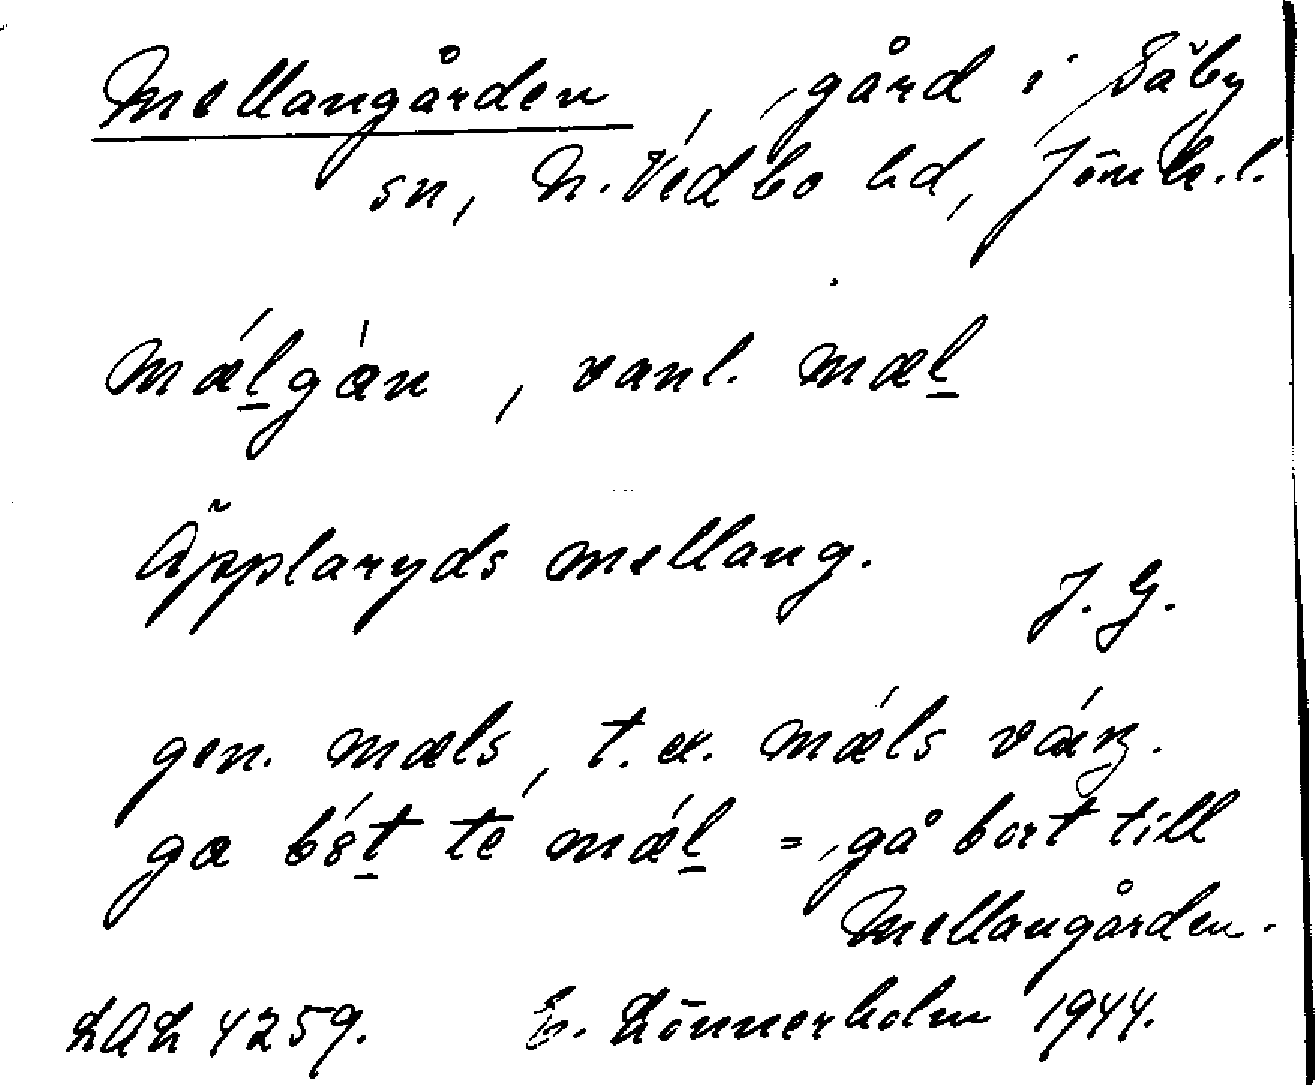 Mellangården, gård i Säby
sn, N. Vedbo hd, Jönk. l.
mǽl̲gán, vanl. mæl̲
Äpplaryds mellang.
J. G.
gen. mæls, t. ex. mǽls
ga bót̲ té mǽl̲ = gå bort till
Mellangården.
LAL 4259. E. Lönnerholm 1944.